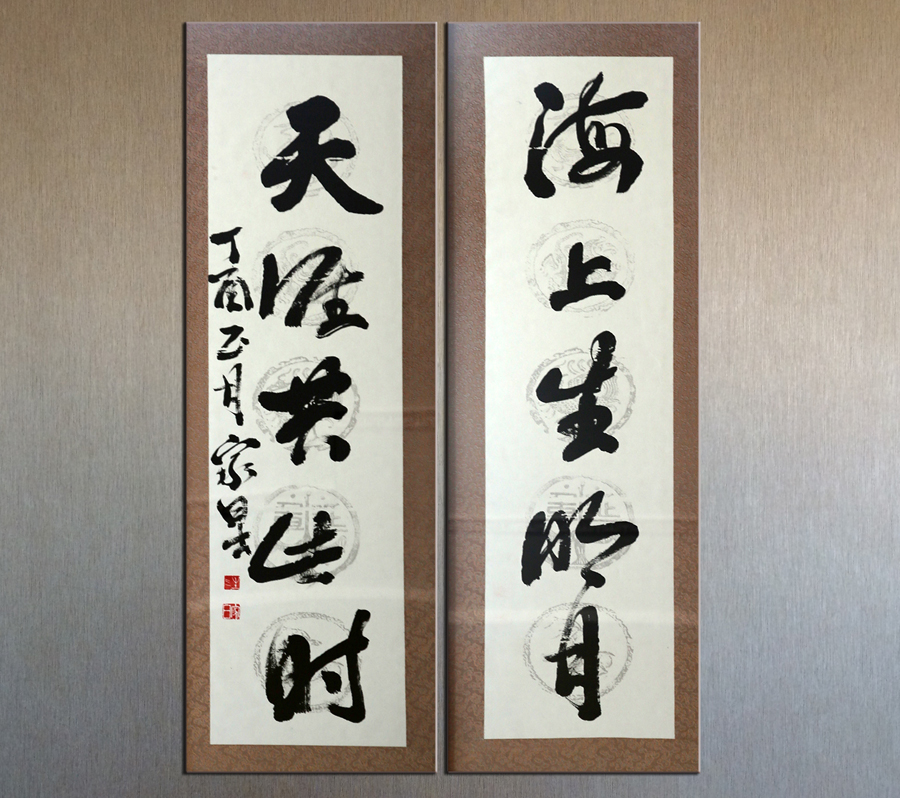 海上生明月
天涯共此时
丁酉正月家